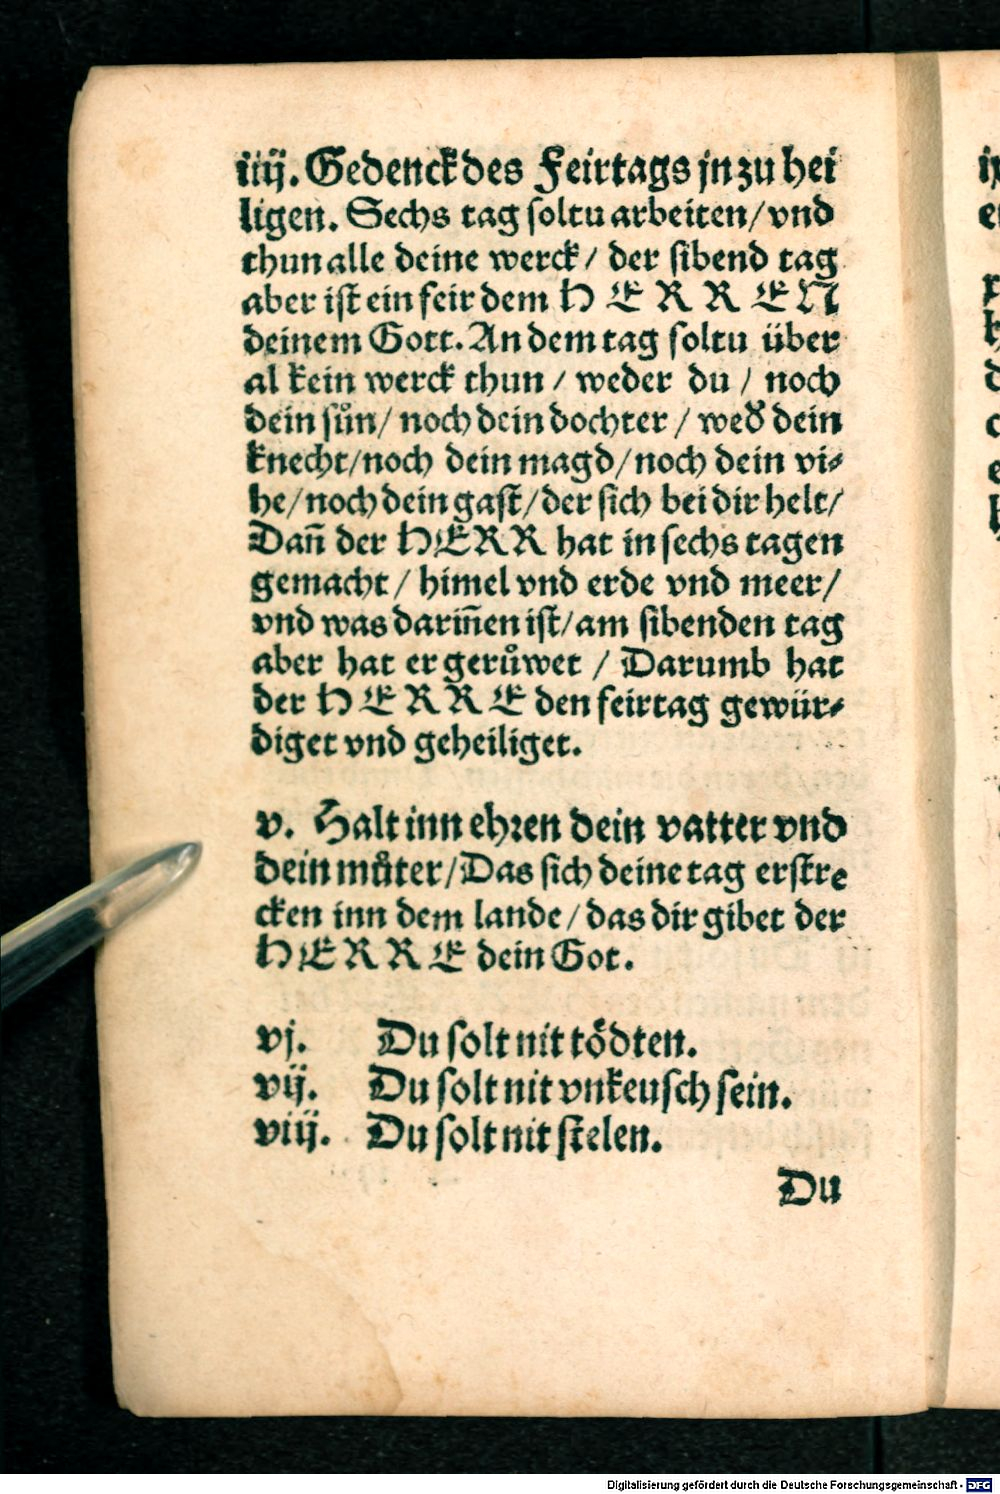 iiij. Gedenck des Feirtags jn zu hei
ligen. Sechs tag soltu arbeiten/vnd
thun alle deine werck/ der sibend tag
aber ist ein feir dem HERREN
deinem Gott. An dem tag soltu über
al kein werck thun / weder du / noch
dein sůn/ noch dein dochter / wed̕ dein
knecht/noch dein magd/noch dein vi⸗
he/noch dein gast/der sich bei dir helt/
Dañ der HERR hat in sechs tagen
gemacht / himel vnd erde vnd meer/
vnd was dariñen ist/am sibenden tag
aber hat er gerůwet / Darumb hat
der HERRE den feirtag gewür⸗
diget vnd geheiliget.
v. Halt inn ehren dein vatter vnd
dein můter/Das sich deine tag erstre
cken inn dem lande/das dir gibet der
HERRE dein Got.
vj. Du solt nit tödten.
vij. Du solt nit vnkeusch sein.
viij. Du solt nit stelen.
Du
Digitalisierung gefördert durch die Deutsche Forschungsgemeinschaft - DFG